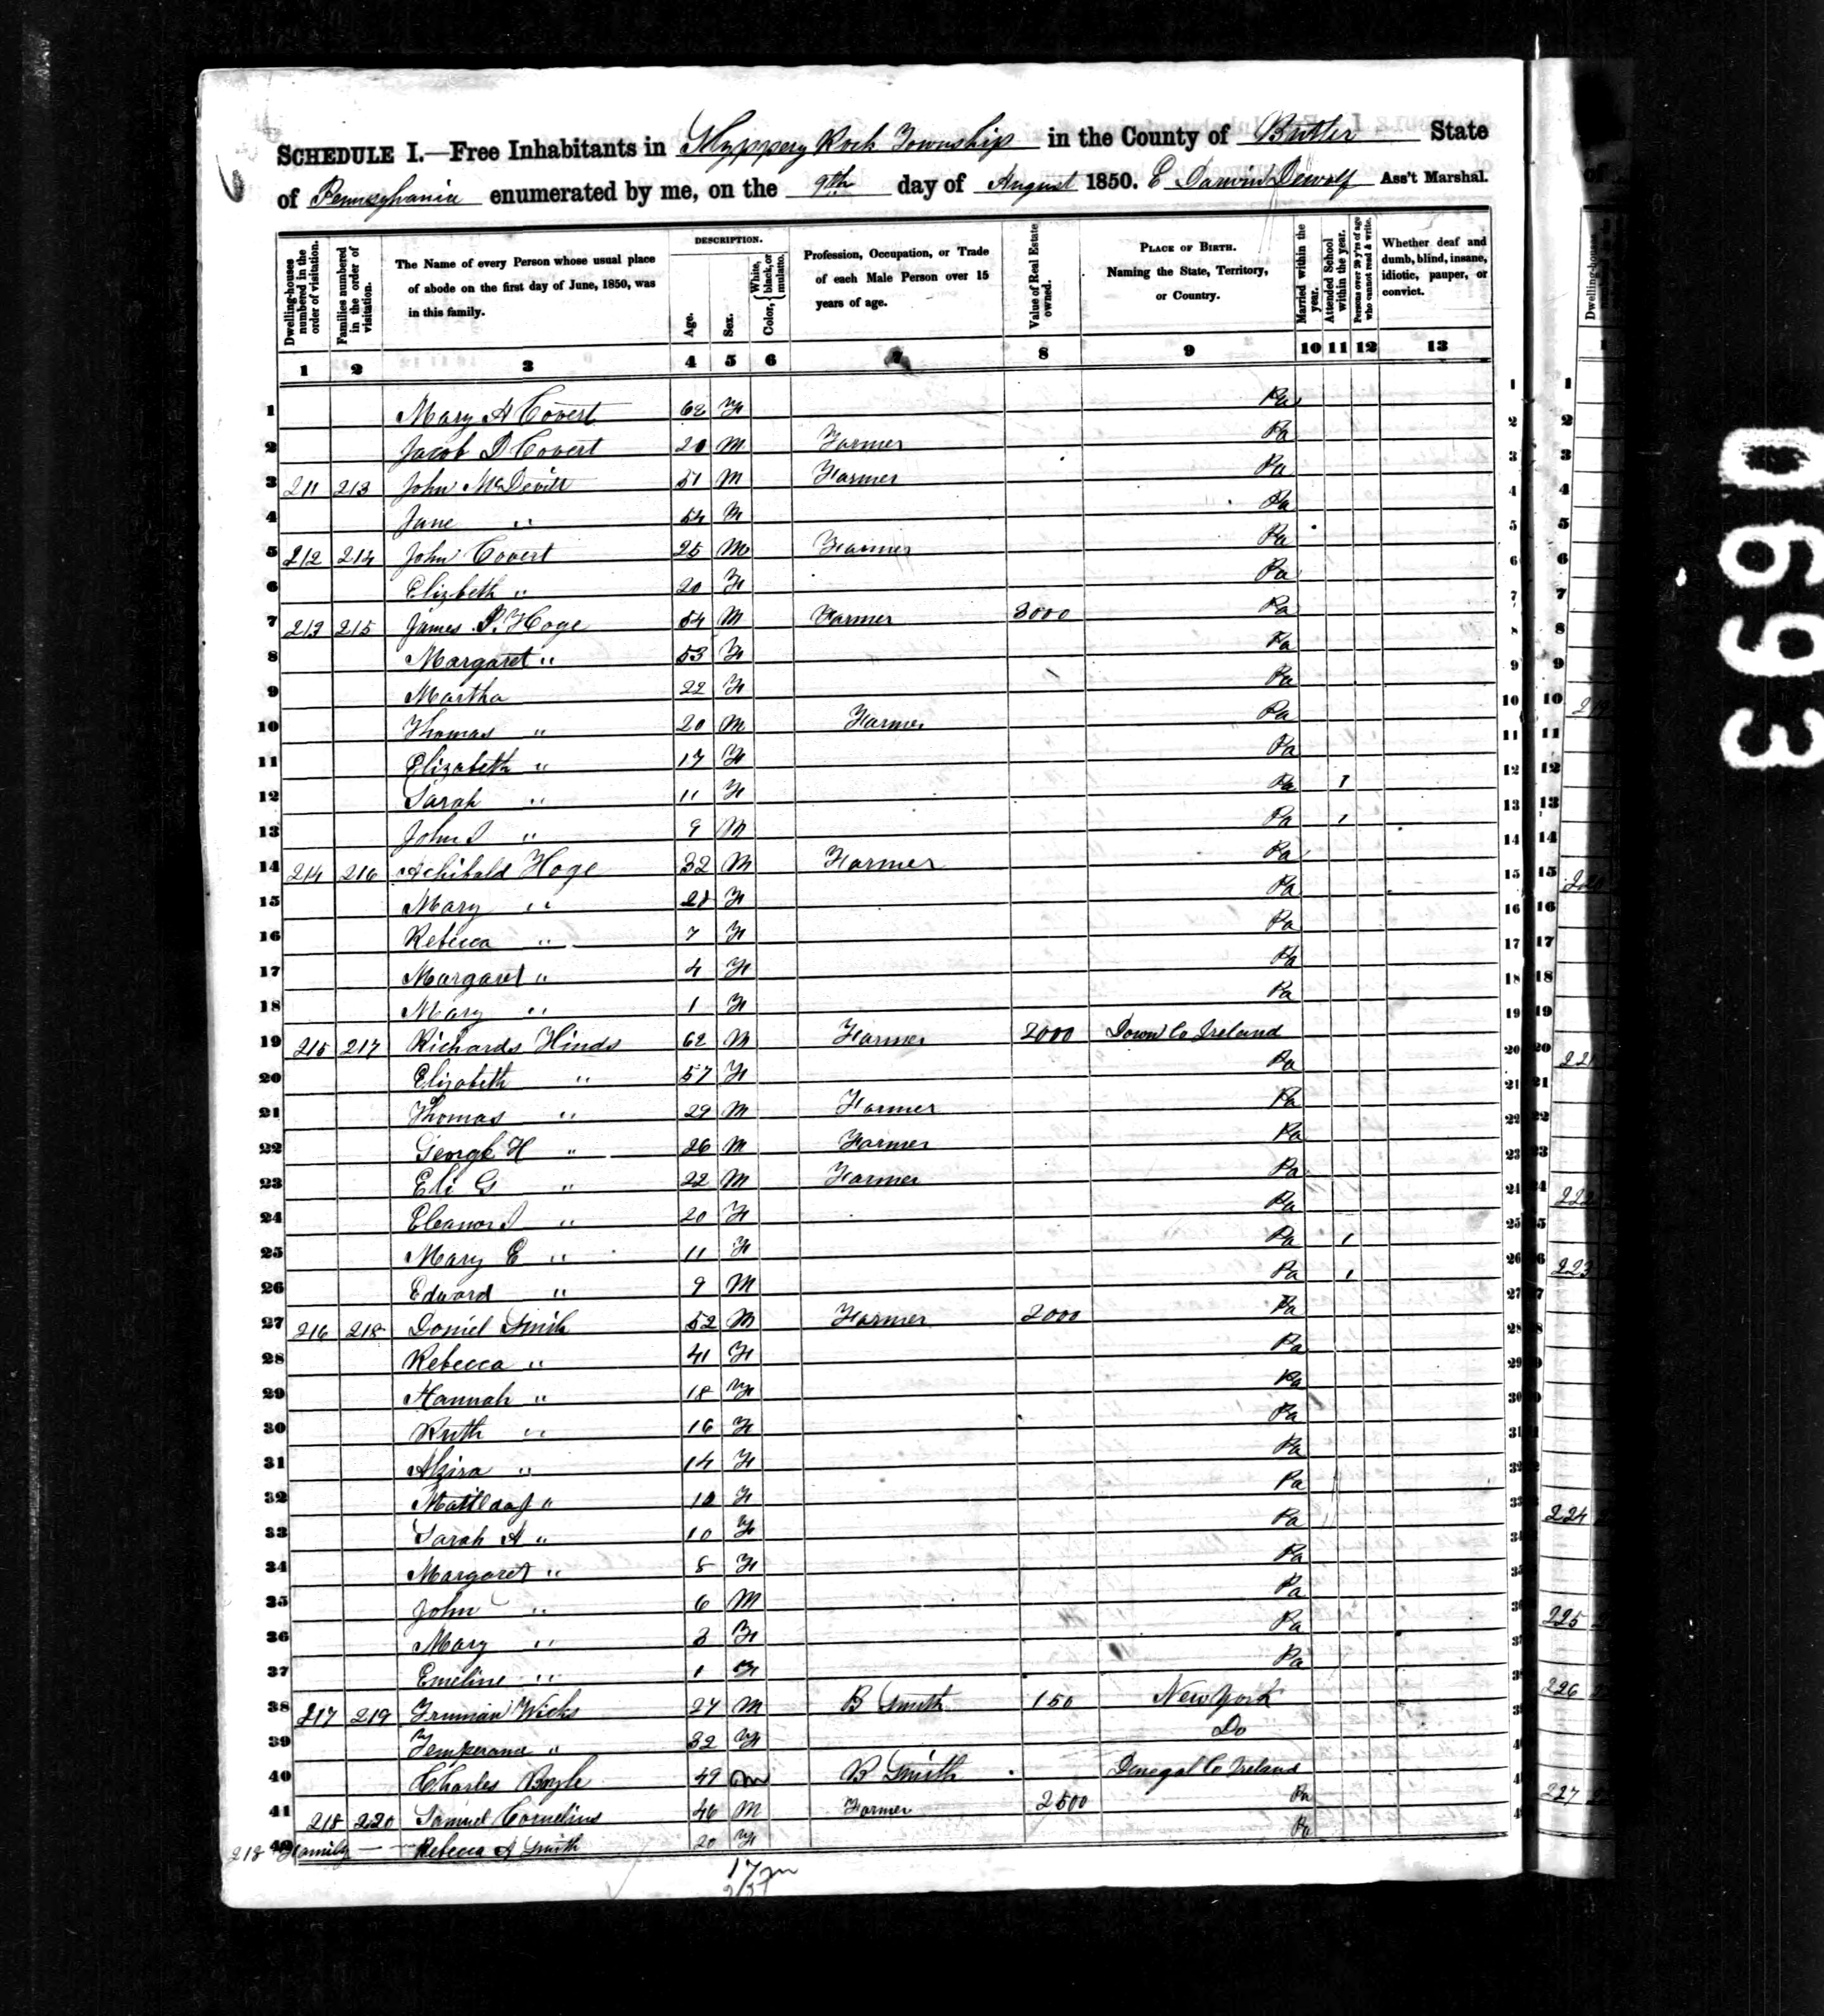 SCHEDULE I.—Free Inhabitants in Slyppery Rock Township in the County of Butler State
of Pennsylvania enumerated by me, on the 9th day of August 1850. E Darwin Dewolf Ass't Marshal.
Dwelling-houses numbered in the order of visitation.
Families numbered in the order of visitation.
The Name of every Person whose usual place of abode on the first day of June, 1850, was in this family.
DESCRIPTION.
Age.
Sex.
Color, { White, black, or mulatto.
Profession, Occupation, or Trade of each Male Person over 15 years of age.
Value of Real Estate owned.
PLACE OF BIRTH. Naming the State, Territory, or Country.
Married within the year.
Attended School within the year.
Persons over 20 y'rs of age who cannot read & write.
Whether deaf and dumb, blind, insane, idiotic, pauper, or convict.
1 2 3 4 5 6 7 8 9 10 11 12 13
1 Mary A Covert 62 F Pa
2 Jacob D Covert 20 M Farmer Pa
3 211 213 John McDevitt 51 M Farmer Pa
4 Jane " 54 F Pa
5 212 214 John Covert 25 M Farmer Pa
6 Elizbeth " 20 F Pa
7 213 215 James P. Hoge 54 M Farmer 3000 Pa
8 Margaret " 53 F Pa
9 Martha 22 F Pa
10 Thomas " 20 M Farmer Pa
11 Elizabeth " 17 F Pa
12 Sarah " 11 F Pa 1
13 John S " 9 M Pa 1
14 214 216 Achibald Hoge 32 M Farmer Pa
15 Mary " 28 F Pa
16 Rebecca " 7 F Pa
17 Margaret " 4 F Pa
18 Mary " 1 F Pa
19 215 217 Richards Hinds 62 M Farmer 2000 Down Co Ireland
20 Elizabeth " 57 F Pa
21 Thomas " 29 M Farmer Pa
22 George H " 26 M Farmer Pa
23 Eli G " 22 M Farmer Pa
24 Eleanor S " 20 F Pa
25 Mary E " 11 F Pa 1
26 Edward " 9 M Pa 1
27 216 218 Daniel Smith 52 M Farmer 2000 Pa
28 Rebecca " 41 F Pa
29 Hannah " 18 F Pa
30 Ruth " 16 F Pa
31 Alzira " 14 F Pa
32 Matilda J " 12 F Pa
33 Sarah A " 10 F Pa
34 Margaret " 8 F Pa
35 John " 6 M Pa
36 Mary " 3 F Pa
37 Emeline " 1 F Pa
38 217 219 Truman Wicks 27 M B Smith 150 New York
39 Temperance " 32 F Do
40 Charles Boyle 49 M B Smith Donegal Co Ireland
41 218 220 Samuel Cornelius 46 M Farmer 2500 Pa
218 42 Family — Rebecca A Smith 20 F Pa
17 m
0693